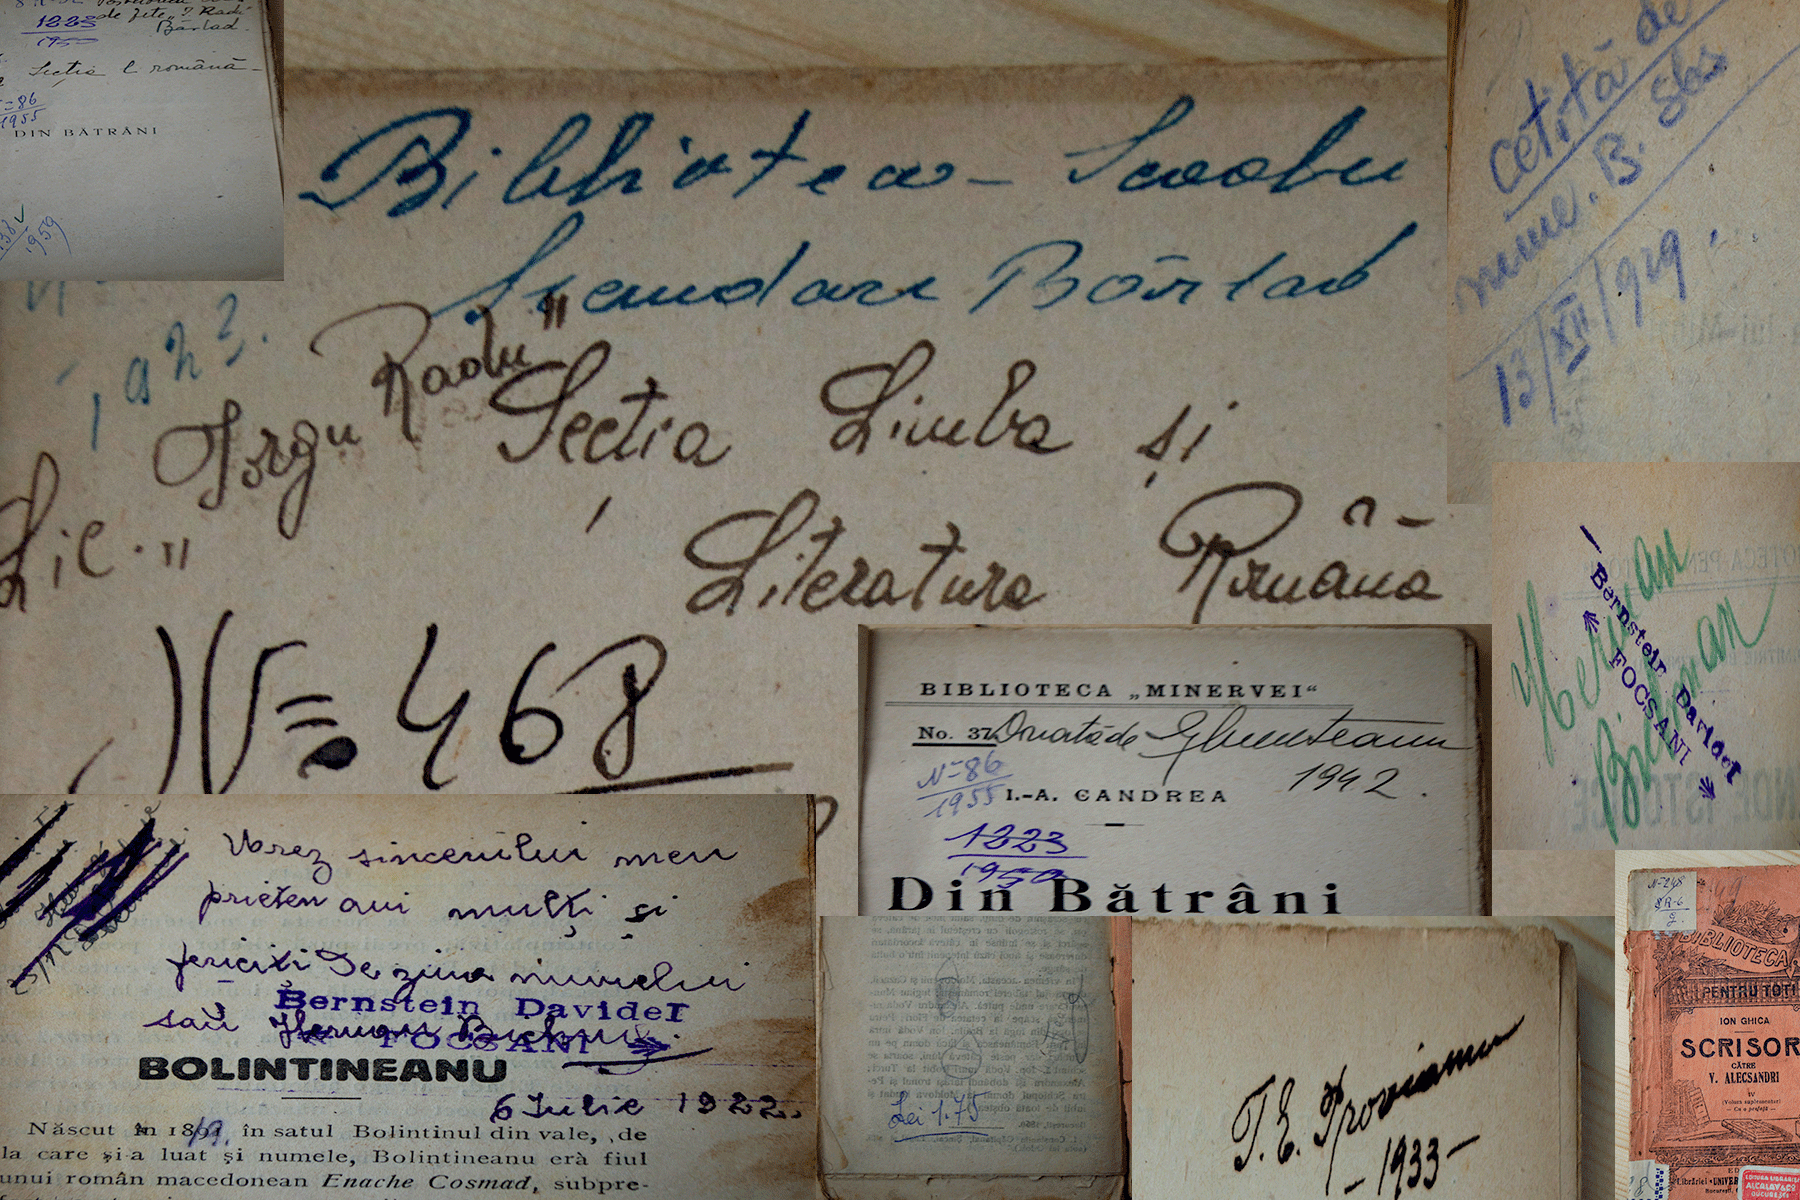 1223
de fete „
Bârlad
1950
Secția l. română
=86
1955
DIN BĂTRÂNI
1959
Biblioteca
Secundare Bârlad
Iorgu Radu"
Secția Limba și
Lic. "
Literatura Română
N= 468
cetită de
mine. B. Sbs
13/XII/919
Herman
Bernstein DavideI
FOCSANI
BIBLIOTECA „MINERVEI“
No. 37. Donată de
N=86
1955
1942.
I.-A. CANDREA
1223
1950
Din Bătrâni
Urez sincerului meu
prieten ani mulți și
fericiți de ziua numelui
sau Herman
Bernstein DavideI
FOCSANI
BOLINTINEANU
6 Iulie 1922.
Născut în 18 în satul Bolintinul din vale, de
la care și-a luat și numele, Bolintineanu erà fiul
unui român macedonean Enache Cosmad, subpre-
Lei 1.75
T. E.
- 1933 -
N=248
8R-6
BIBLIOTECA
PENTRU TOȚI
ION GHICA
SCRISOR
CĂTRE
V. ALECSANDRI
IV